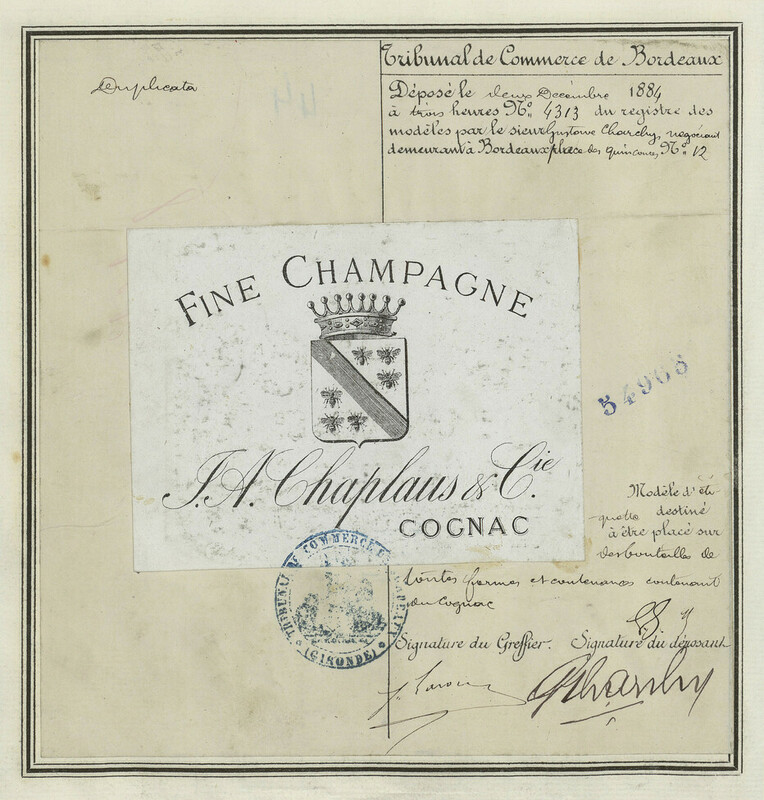 Duplicata
Tribunal de Commerce de Bordeaux
Déposé le deux Décembre 1884
à trois heures N° 4313 du registre des
modèles par le sieur Gustave Charchy, négociant
demeurant à Bordeaux place des Quinconces, N° 12
FINE CHAMPAGNE
J. A. Chaplaus & Cie.
COGNAC
54908
Modèle d'éti-
quette destiné
à être placé sur
des bouteilles de
toutes formes et contenances contenant
du Cognac
TRIBUNAL DE COMMERCE DE BORDEAUX
(GIRONDE)
Signature du Greffier. Signature du déposant